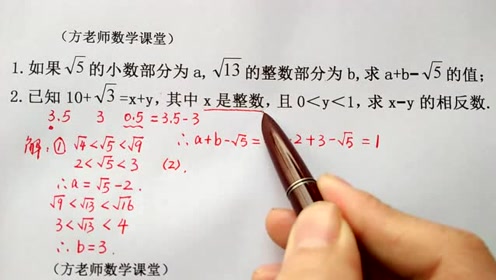 （方老师数学课堂）
1.如果√5的小数部分为a,√13的整数部分为b,求a+b-√5的值;
2.已知10+√3=x+y,其中x是整数,且0<y<1,求x-y的相反数.
3.5 3 0.5=3.5-3
解:① √4<√5<√9 ∴a+b-√5= -2+3-√5=1
2<√5<3 (2).
∴a=√5-2.
√9<√13<√16
3<√13<4
∴b=3.
（方老师数学课堂）